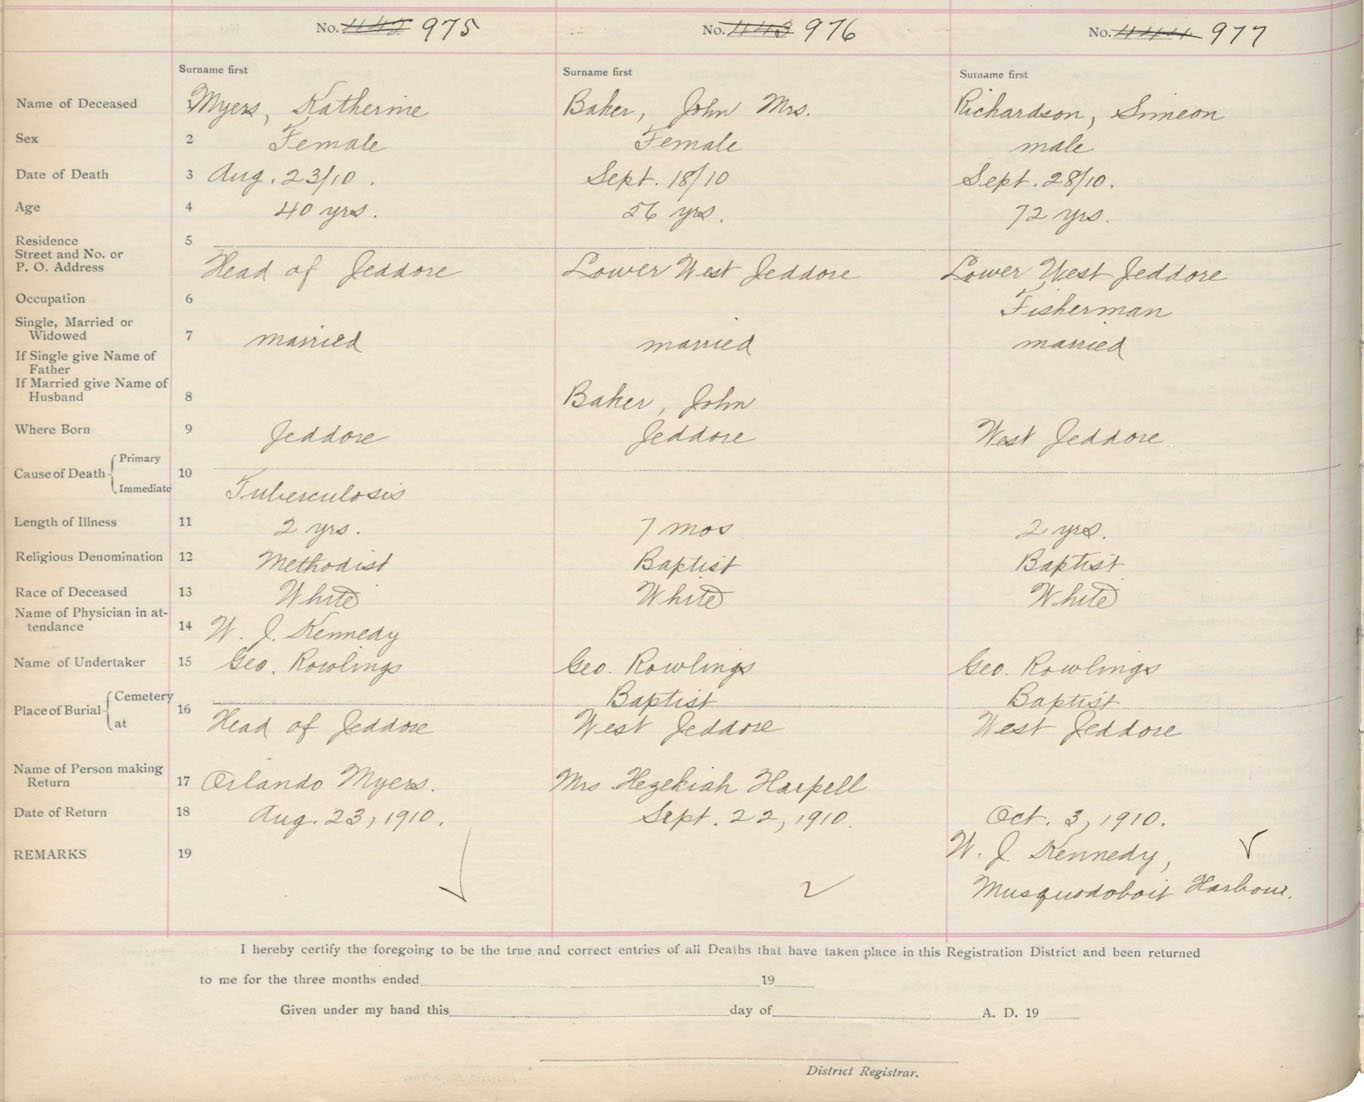 No. 975 No. 976 No. 977
Surname first Surname first Surname first
Name of Deceased Myers, Katherine Baker, John Mrs. Richardson, Simeon
Sex 2 Female Female male
Date of Death 3 Aug. 23/10. Sept. 18/10 Sept. 28/10.
Age 4 40 yrs. 56 yrs. 72 yrs.
Residence 5
Street and No. or
P. O. Address Head of Jeddore Lower West Jeddore Lower West Jeddore
Occupation 6 Fisherman
Single, Married or
Widowed 7 married married married
If Single give Name of
Father
If Married give Name of
Husband 8 Baker, John
Where Born 9 Jeddore Jeddore West Jeddore
Cause of Death Primary 10
Immediate Tuberculosis
Length of Illness 11 2 yrs. 7 mos 2 yrs.
Religious Denomination 12 Methodist Baptist Baptist
Race of Deceased 13 White White White
Name of Physician in at-
tendance 14 W. J. Kennedy
Name of Undertaker 15 Geo. Rowlings Geo. Rowlings Geo. Rowlings
Place of Burial Cemetery 16 Baptist Baptist
at Head of Jeddore West Jeddore West Jeddore
Name of Person making
Return 17 Orlando Myers. Mrs Hezekiah Harpell
Date of Return 18 Aug. 23, 1910. Sept. 22, 1910. Oct. 3, 1910.
REMARKS 19 W. J. Kennedy,
Musquodoboit Harbour.
I hereby certify the foregoing to be the true and correct entries of all Deaths that have taken place in this Registration District and been returned
to me for the three months ended 19
Given under my hand this day of A. D. 19
District Registrar.